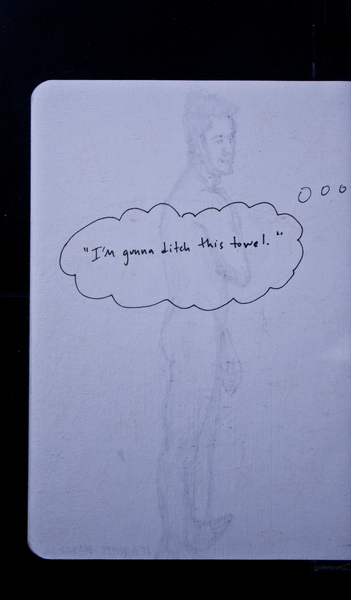 "I'm gunna ditch this towel."